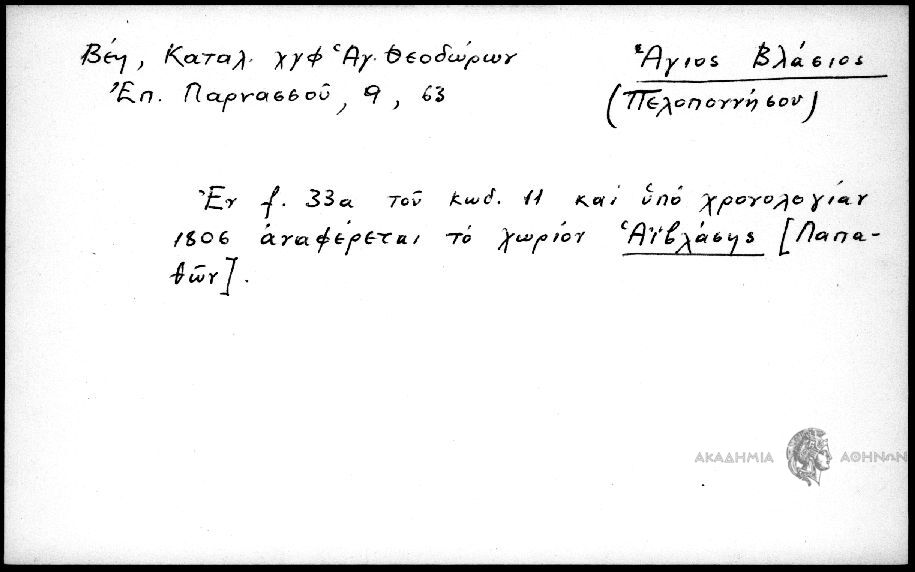 Βέη, Καταλ. χγφ Ἁγ. Θεοδώρων
Ἐπ. Παρνασσοῦ, 9, 63
Ἅγιος Βλάσιος
(Πελοποννήσου)
Ἐν f. 33α τοῦ κωδ. 11 καὶ ὑπὸ χρονολογίαν
1806 ἀναφέρεται τὸ χωρίον Ἁϊβλάσης [Παπα-
θῶν].
ΑΚΑΔΗΜΙΑ ΑΘΗΝΩΝ